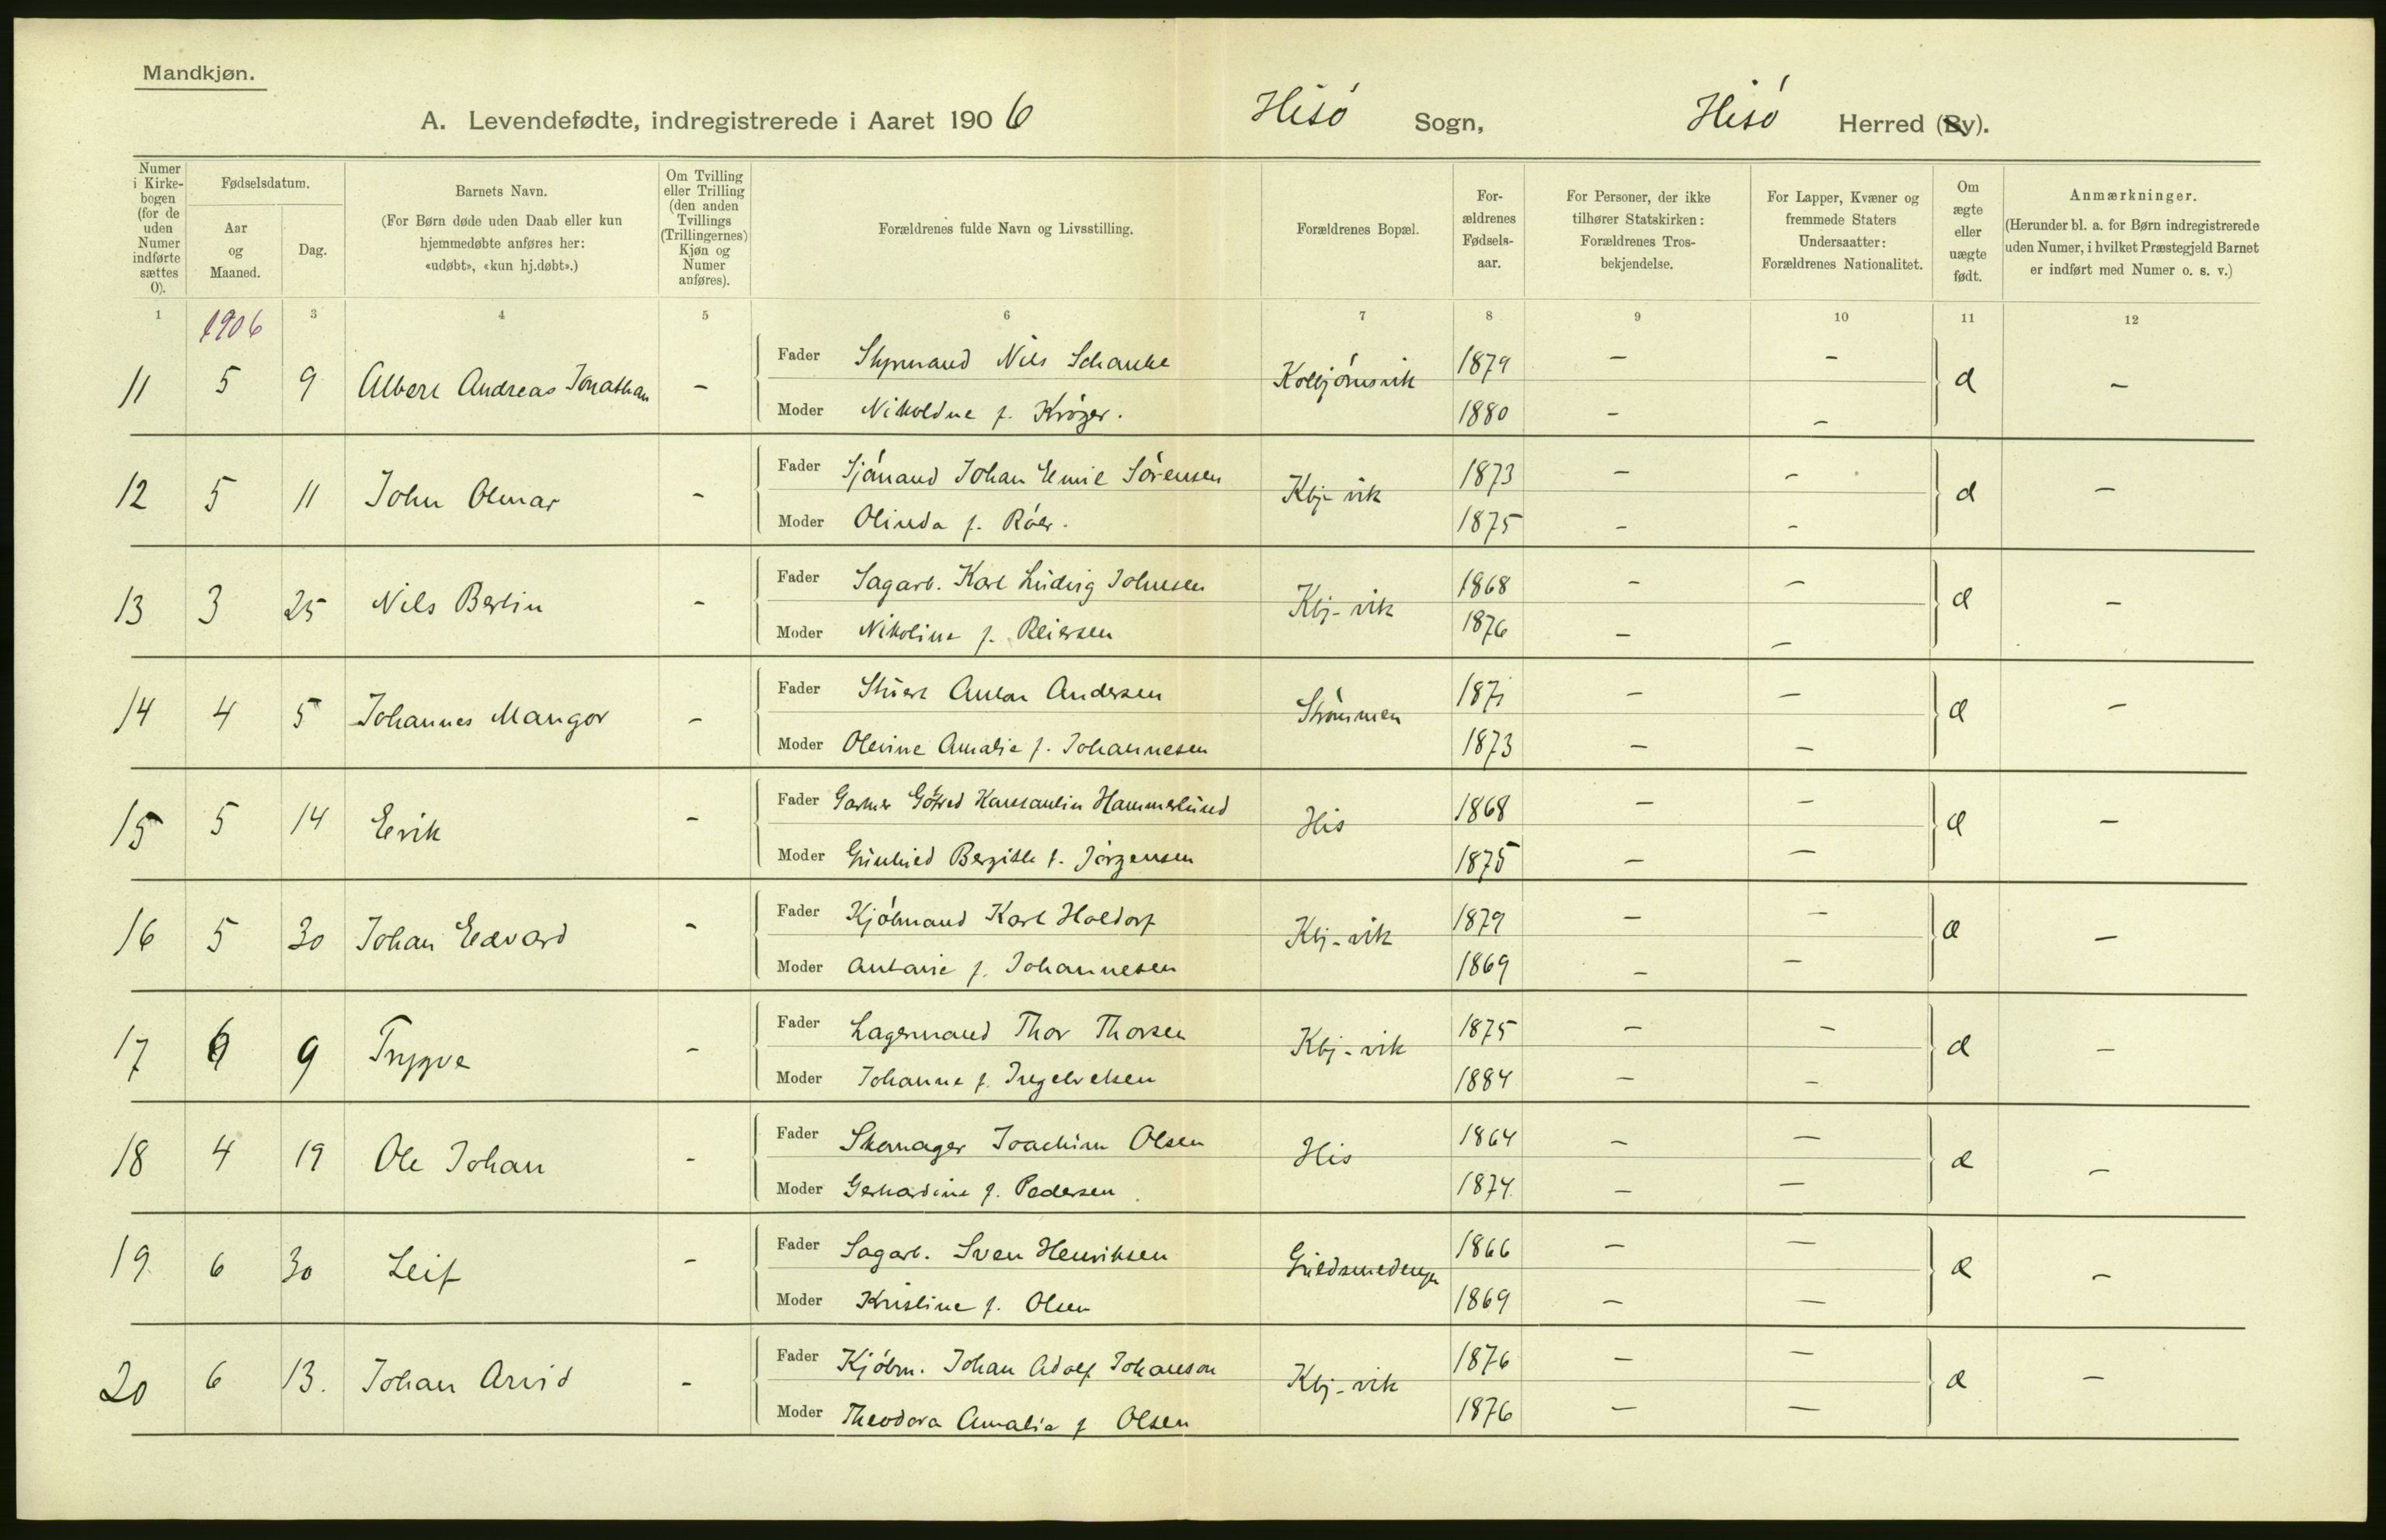 Mandkjøn.
A. Levendefødte, indregistrerede i Aaret 1906 Hisö Sogn, Hisö Herred (By).
Numer i Kirkebogen (for de uden Numer indførte sættes 0).
Fødselsdatum.
Aar og Maaned.
Dag.
Barnets Navn.
(For Børn døde uden Daab eller kun hjemmedøbte anføres her: «udøbt», «kun hj.døbt».)
Om Tvilling eller Trilling (den anden Tvillings (Trillingernes) Kjøn og Numer anføres).
Forældrenes fulde Navn og Livsstilling.
Forældrenes Bopæl.
Forældrenes Fødselsaar.
For Personer, der ikke tilhører Statskirken: Forældrenes Trosbekjendelse.
For Lapper, Kvæner og fremmede Staters Undersaatter: Forældrenes Nationalitet.
Om ægte eller uægte født.
Anmærkninger.
(Herunder bl. a. for Børn indregistrerede uden Numer, i hvilket Præstegjeld Barnet er indført med Numer o. s. v.)
1 1906 3 4 5 6 7 8 9 10 11 12
Fader Styrmand Nils Schanke 1879 – –
11 5 9 Albert Andreas Jonathan – Kolbjørnsvik –
Moder Nikoldne f. Kröger. 1880 – –
Fader Sjömand Johan Emil Sörensen 1873 – –
12 5 11 John Olmar – Kbj-vik –
Moder Olinda f. Röer. 1875 – –
Fader Sagarb. Karl Ludvig Johnsen 1868 – –
13 3 25 Nils Bertin – Kbj-vik –
Moder Nikoline f. Reiersen 1876 – –
Fader Stuert Anton Andersen 1871 – –
14 4 5 Johannes Mangor – Strömmen –
Moder Olevine Amalie f. Johannesen 1873 – –
Fader Hammerlund 1868 – –
15 5 14 Eerik – His –
Moder Bergitte f. Jörgensen 1875 – –
Fader Kjöbmand Karl Holdorf 1879 – –
16 5 30 Johan Edvard – Kbj-vik –
Moder Antonie f. Johannesen 1869 – –
Fader Lagermand Thor Thorsen 1875 – –
17 6 9 Trygve – Kbj-vik –
Moder Johanne f. Ingelvelsen 1884 – –
Fader Skomager Joachim Olsen 1864 – –
18 4 19 Ole Johan – His –
Moder Gerhardine f. Pedersen 1874 – –
Fader Sagarb. Sven Henriksen 1866 – –
19 6 30 Leif – Guldsmedengen –
Moder Kristine f. Olsen 1869 – –
Fader Kjöbm. Johan Adolf Johanson 1876 – –
20 6 13. Johan Arvid – Kbj-vik –
Moder Theodora Amalia f Olsen 1876 – –